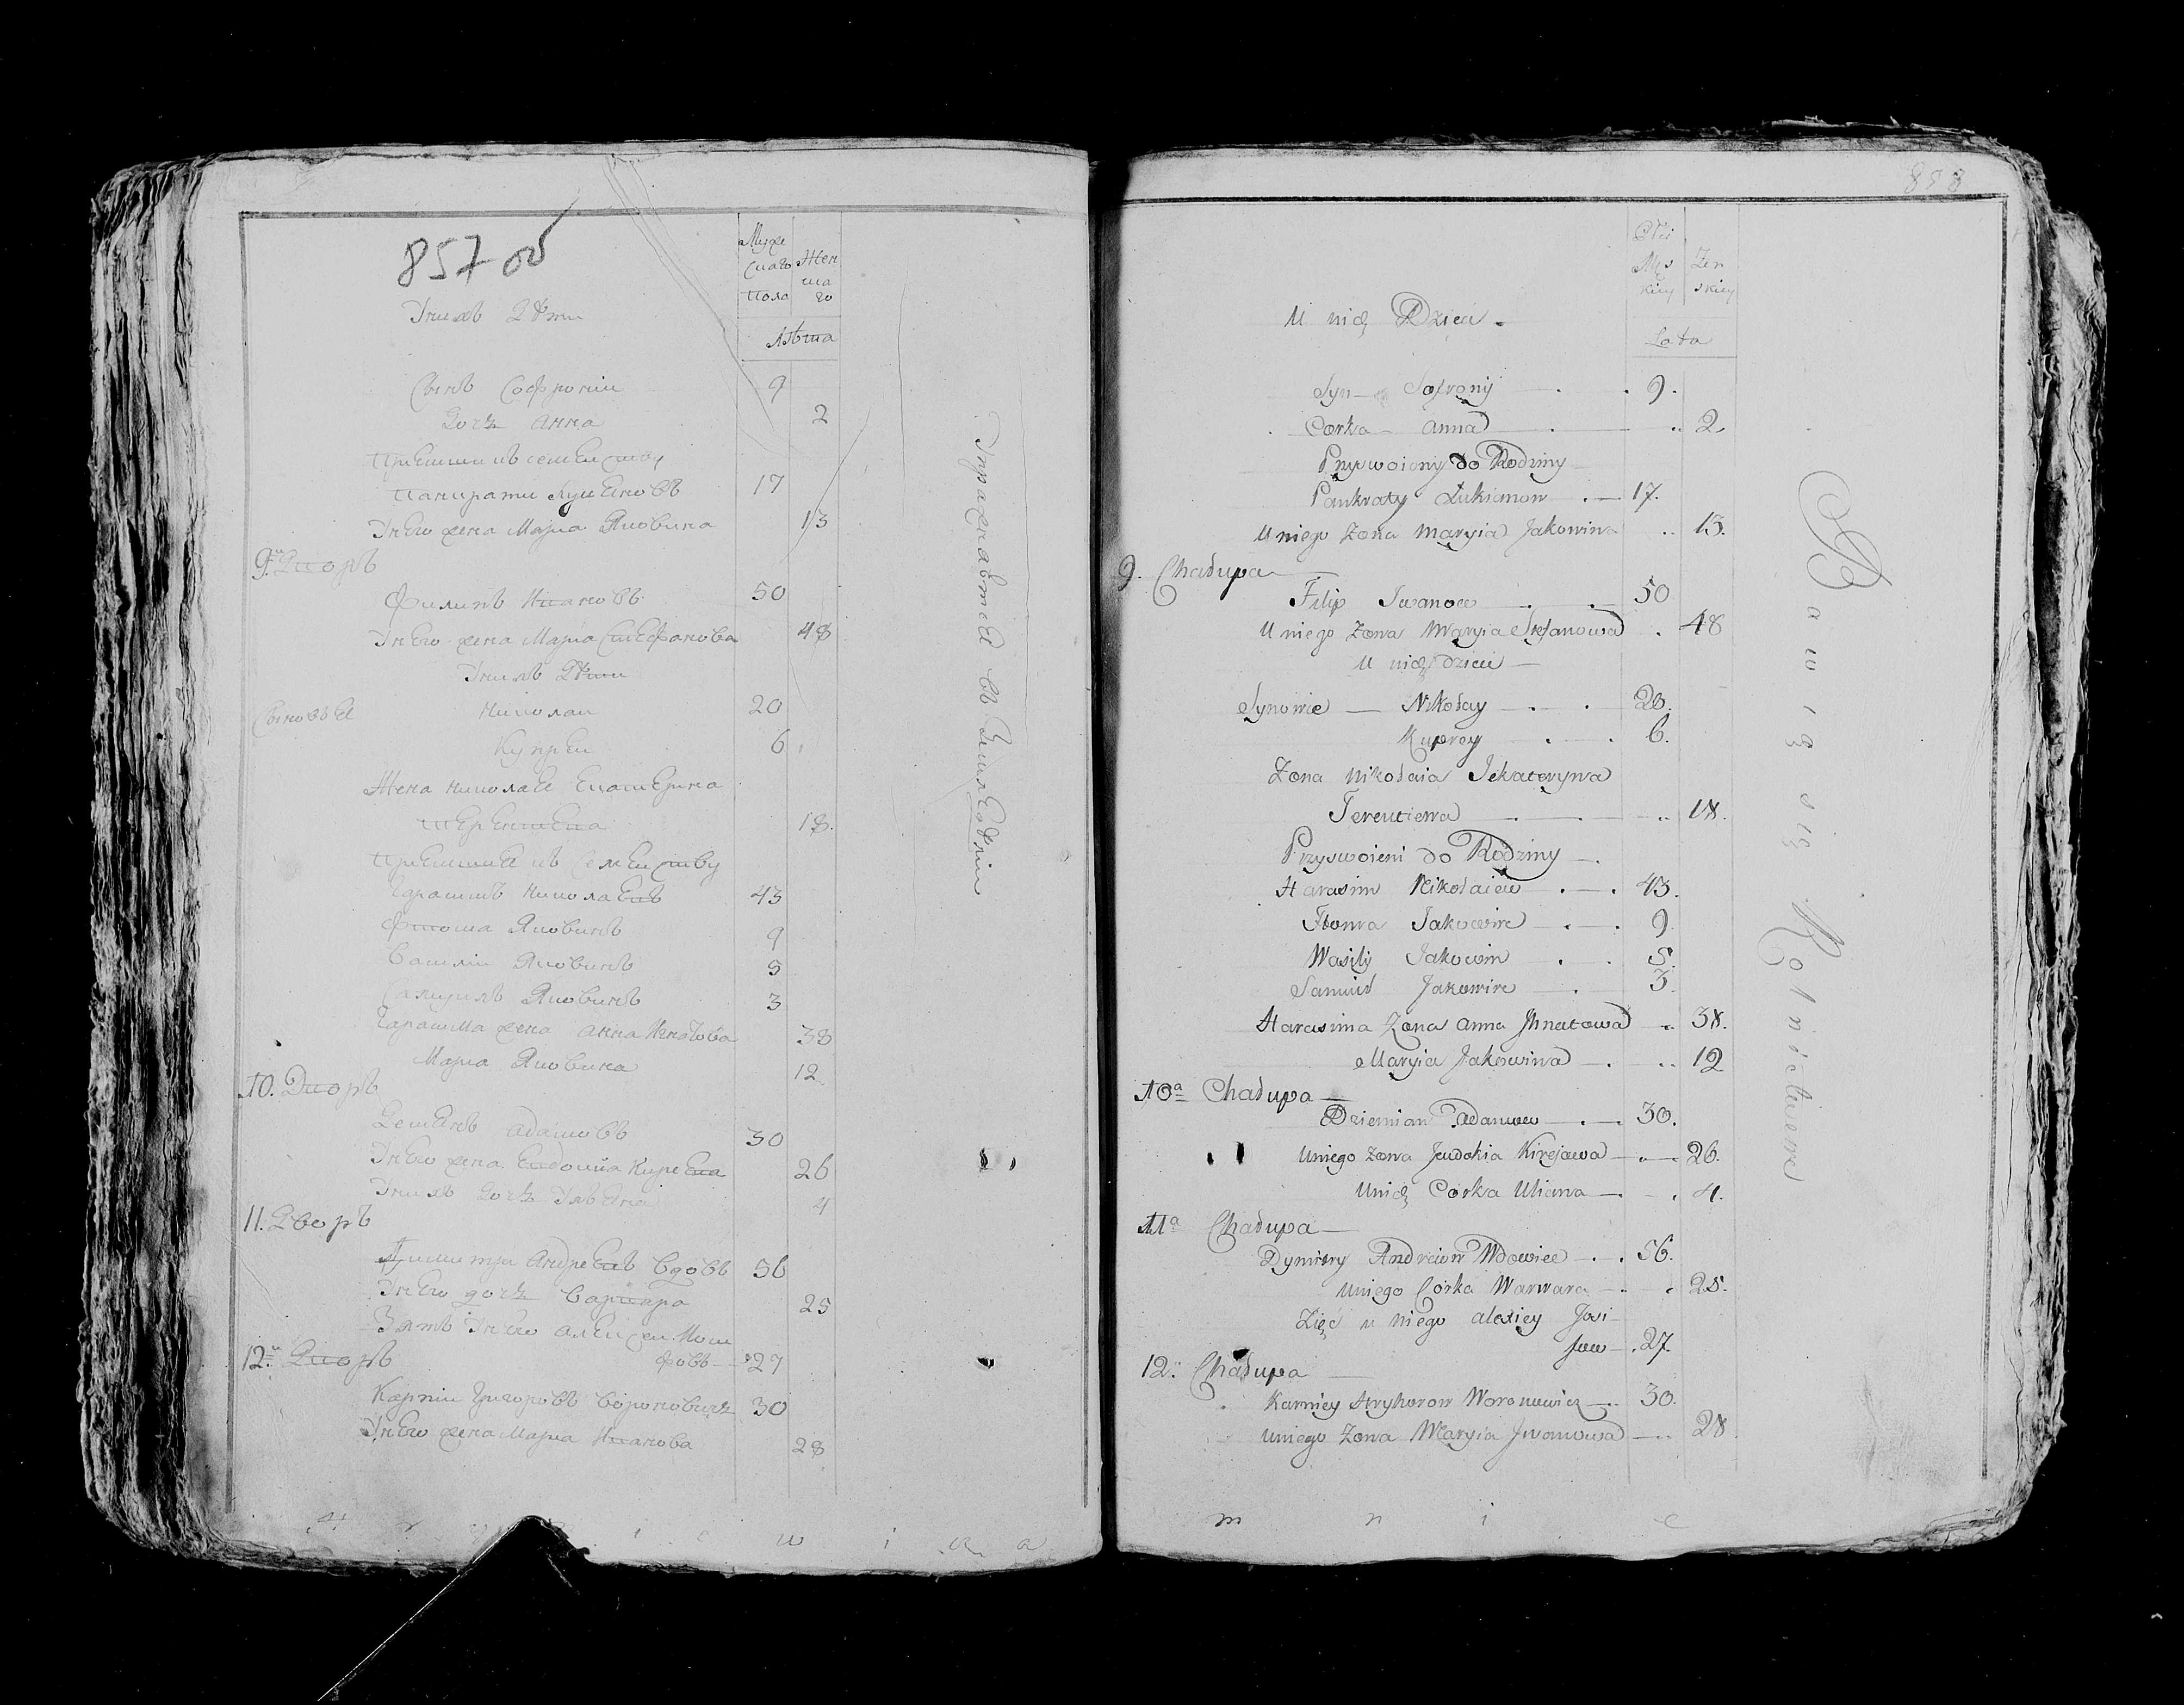 857 об
Мужескаго пола
Женскаго
Лѣта
У нихъ Дѣти
Сынъ Софроніи 9
Дочь Анна 2
Панкрати Лукяновъ 17
У него жена Марıа Яковина 13
9. Дворъ
Филипъ Ивановъ 50
У него жена Марıа Стефанова 48
У нихъ Дѣти
Сыновья Николаи 20
Купреи 6
Жена Николая Екатерина
Терентева 18.
Гарасимъ Николаевъ 43
Ѳтома Яковинъ 9
Василıи Яковинъ 5
Самуилъ Яковинъ 3
Гарасима жена Анна Игнатова 38
Марıа Яковина 12
10. Дворъ
Демянъ Адамовъ 30
У него жена Евдокıа Киреева 26
У нихъ дочь Ульяна 4
11. Дворъ
Димитри Андреевъ вдовъ 56
У него дочь Варвара 25
Зять у него Алексеи Иоси
фовъ 27
12. Дворъ
Карпıи Григоровъ Вороновичъ 30
У него жена Марıа Иванова 28
Упражняются въ Земледѣлıи
i c w i cz a
858
Płci
Męskiey
Zenskiey
Lata
U nich Dzieci
Syn Sofroniy 9.
Corka Anna 2
Przyswoiony do Rodziny
Pankraty Lukianow 17.
U niego Zona Maryia Jakowina 13.
9. Chałupa
Filip Iwanow 50
U niego Zona Maryia Stefanowa 48
U nich dzieci
Synowie Nikołay 20.
Kuprey 6.
Zona Nikołaia Jekateryna
Terentiewa 18.
Przyswoieni do Rodziny
Harasim Nikołaiew 43.
Ftoma Jakowin 9
Wasily Jakowin 5.
Samuił Jakowin 3.
Harasima Zona Anna Ihnatowa 38.
Maryia Jakowina 12
10a Chałupa
Dziemian Adamow 30.
U niego Zona Jeudokia Kirejewa 26.
U nich Corka Uliana 4.
11a Chałupa
Dymitry Andreiew Wdowiec 56.
U niego Corka Warwara 25.
Zięć u niego Alexiey Josi
fow 27.
12. Chałupa
Karniey Hryhorow Woronowicz 30.
U niego Zona Maryia Jwanowa 28
Bawią się Rolnictwem
m n i e